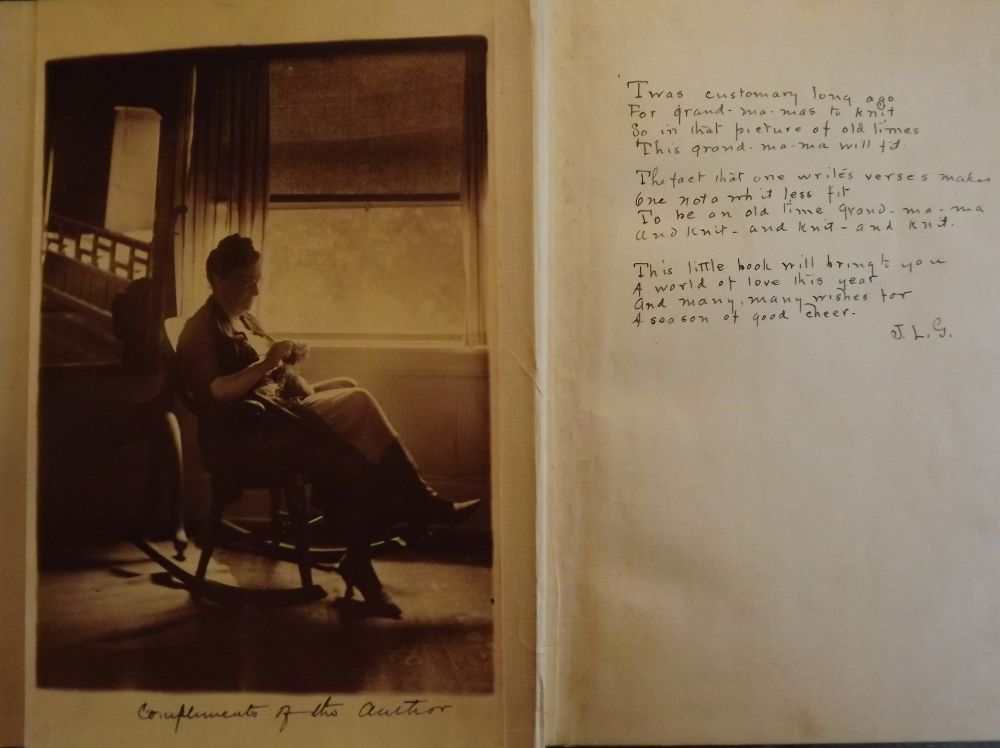 Compliments of the Author
'Twas customary long ago
For grand-ma-mas to knit
So in that picture of old times
This grand-ma-ma will fit.
The fact that one writes verses makes
One not a whit less fit
To be an old time grand-ma-ma
And knit- and knit- and knit.
This little book will bring to you
A world of love this year
And many, many wishes for
A season of good cheer.
J. L. G.